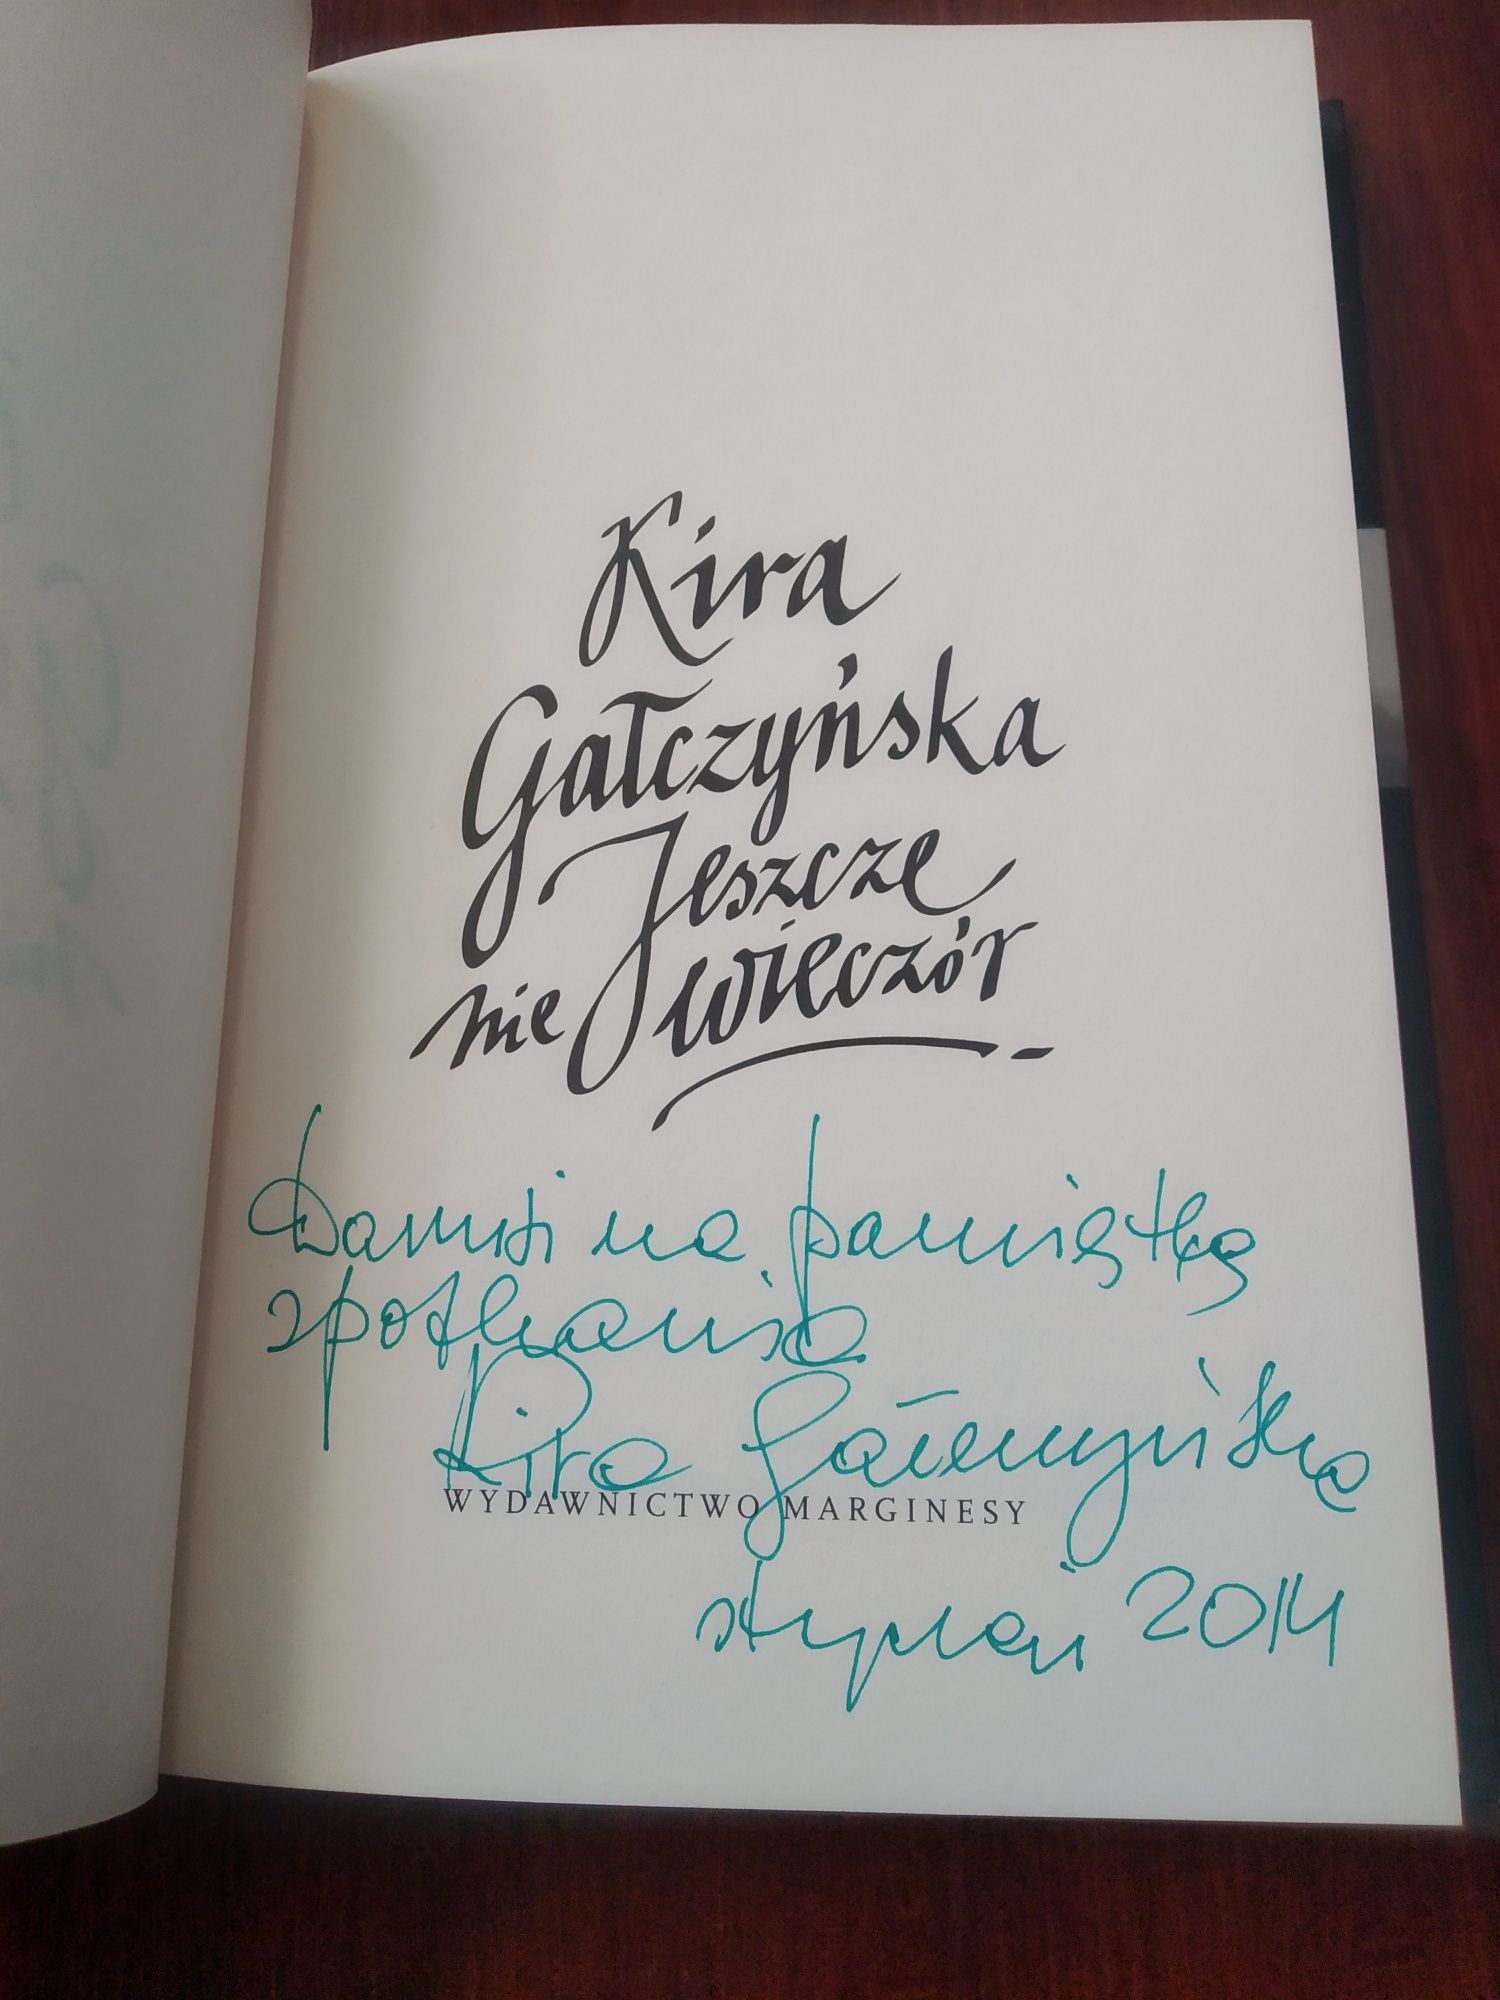 Kira
Gałczyńska
Jeszcze
nie wieczór
Danusi na pamiątkę
spotkania
Kira Gałczyńska
WYDAWNICTWO MARGINESY
styczeń 2014